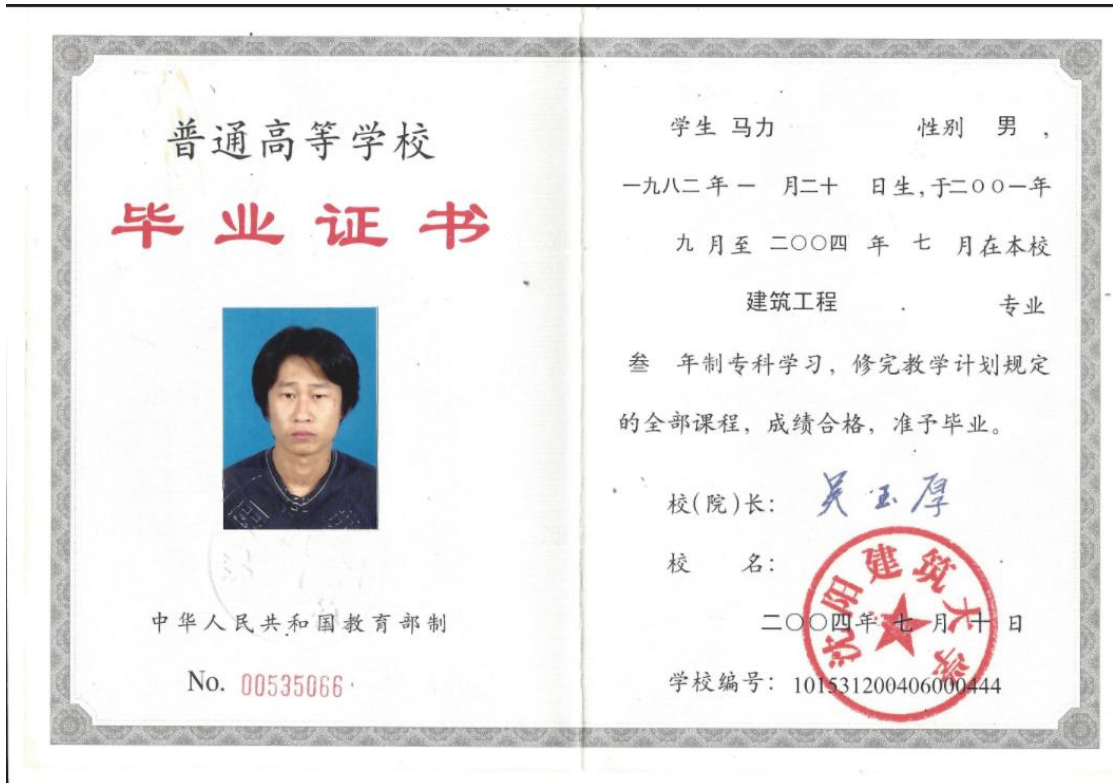 普通高等学校
毕业证书
中华人民共和国教育部制
No. 00535066
学生 马力 性别 男 ,
一九八二年一 月二十 日生,于二〇〇一年
九月至二〇〇四年七月在本校
建筑工程 . 专业
叁 年制专科学习，修完教学计划规定
的全部课程，成绩合格，准予毕业。
校(院)长： 吴玉厚
校 名：
沈阳建筑大学
二〇〇四年七月十日
学校编号：101531200406000444